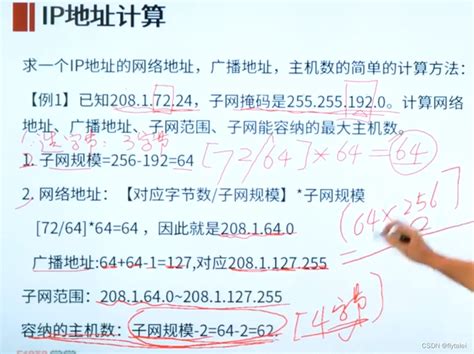 IP地址计算
求一个IP地址的网络地址，广播地址，主机数的简单的计算方法：
【例1】已知208.1.72.24，子网掩码是255.255.192.0。计算网络
地址、广播地址、子网范围、子网能容纳的最大主机数。
1.选字节：3字节
1. 子网规模=256-192=64 [72/64]*64=64
2. 网络地址：【对应字节数/子网规模】*子网规模
[72/64]*64=64 ，因此就是208.1.64.0
(64×256
广播地址:64+64-1=127,对应208.1.127.255
子网范围：208.1.64.0~208.1.127.255
容纳的主机数：子网规模-2=64-2=62。 [4字节]
CSDN @flytalei